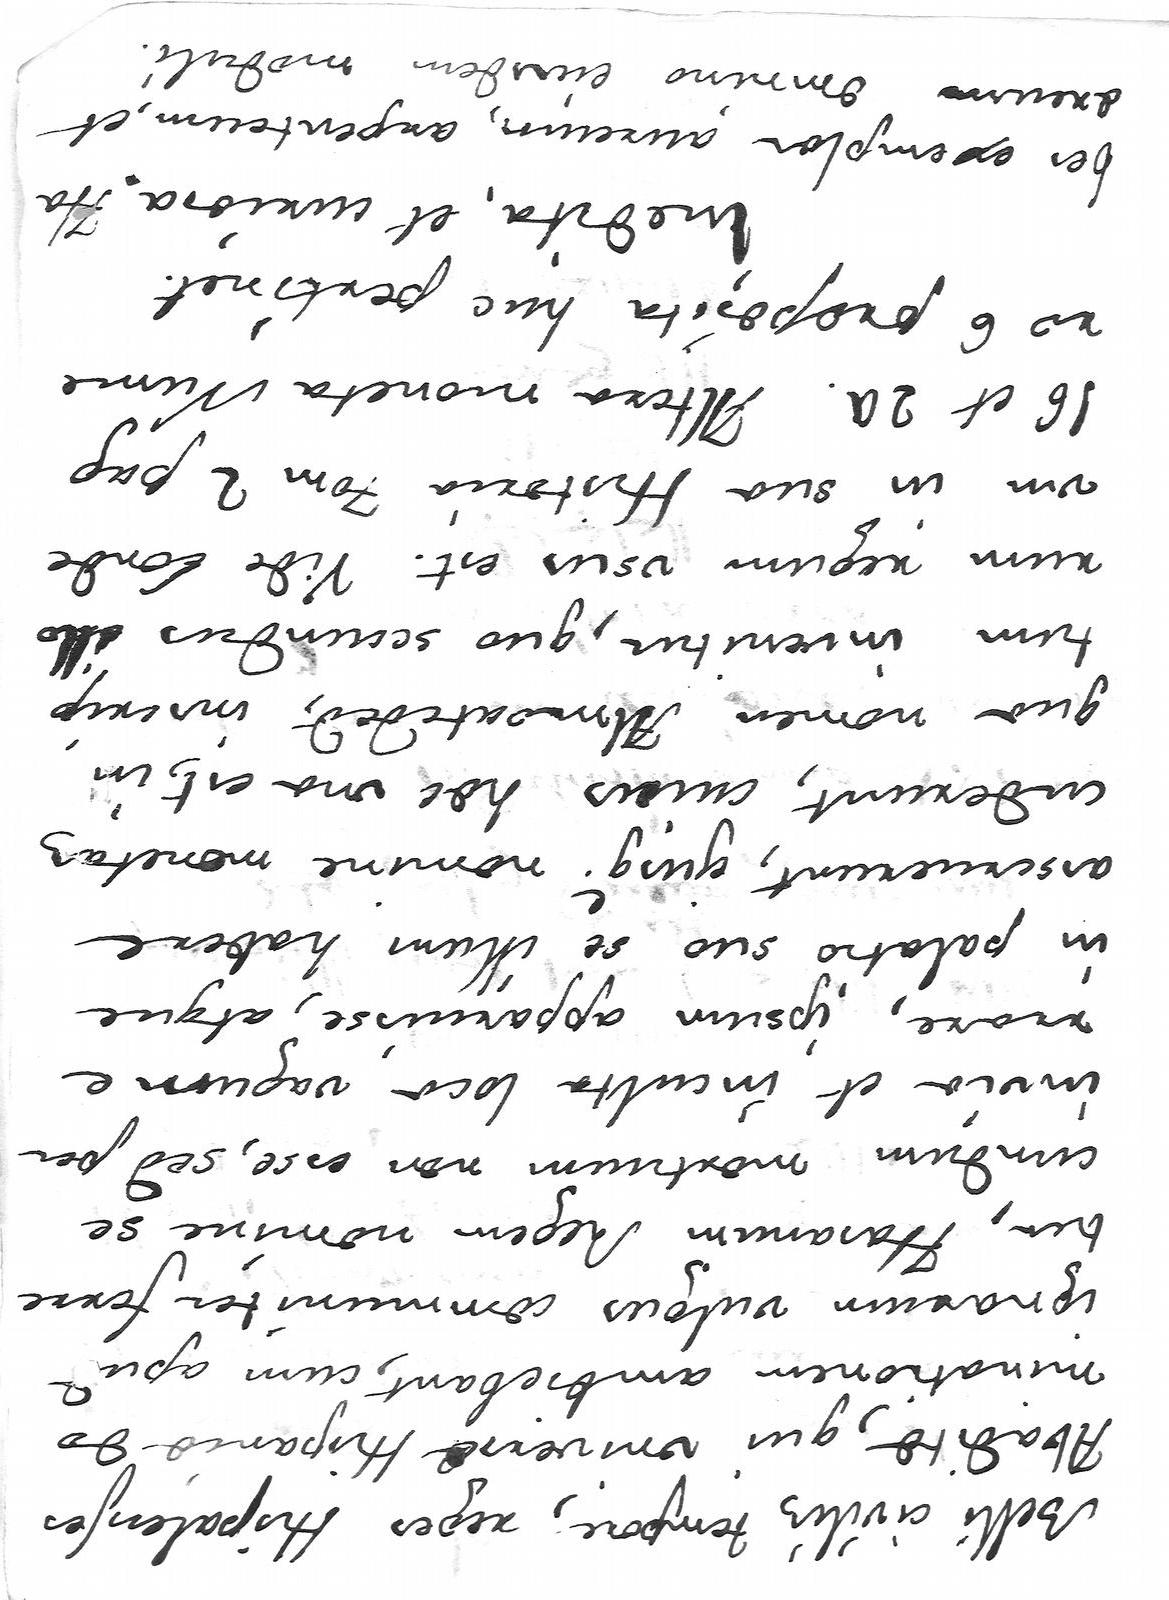 Belli civilis tempore, reges Hispalenses
Abadite, qui universe Hispanie do
minationem ambiebant, cum apud
ignarum vulgus communiter ferre
tur, Hasanum Regem nomine se
cundum mortuum non esse, sed per
invia et inculta loca vagum e
rrare, ipsum apparuisse, atque
in palatio suo se illum habere
asseruerunt, ejusq. nomine monetas
cuderunt, cuius hec una est, in
qua nomen Almoateded, inscrip
tum invenitur, quo secundus illo
rum regum usus est. Vide Conde
um in sua Historia Tom 2 pag
16 et 20. Altera moneta Nume
ro 6 proposita huc pertinet.
Inedita, et curiosa. Ha
bes exemplar aureum, argenteum, et
ereum omnino eiusdem moduli.